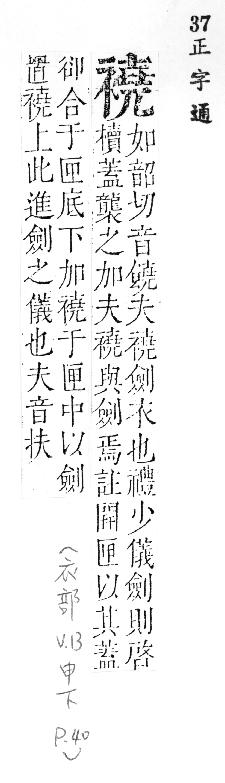 37正字通
襓
如韶切音饒夫襓劍衣也禮少儀劍則啓
櫝蓋襲之加夫襓與劍焉註開匣以其蓋
卻合于匣底下加襓于匣中以劍
置襓上此進劍之儀也夫音扶
(衣部 V.13 申下 P.40)